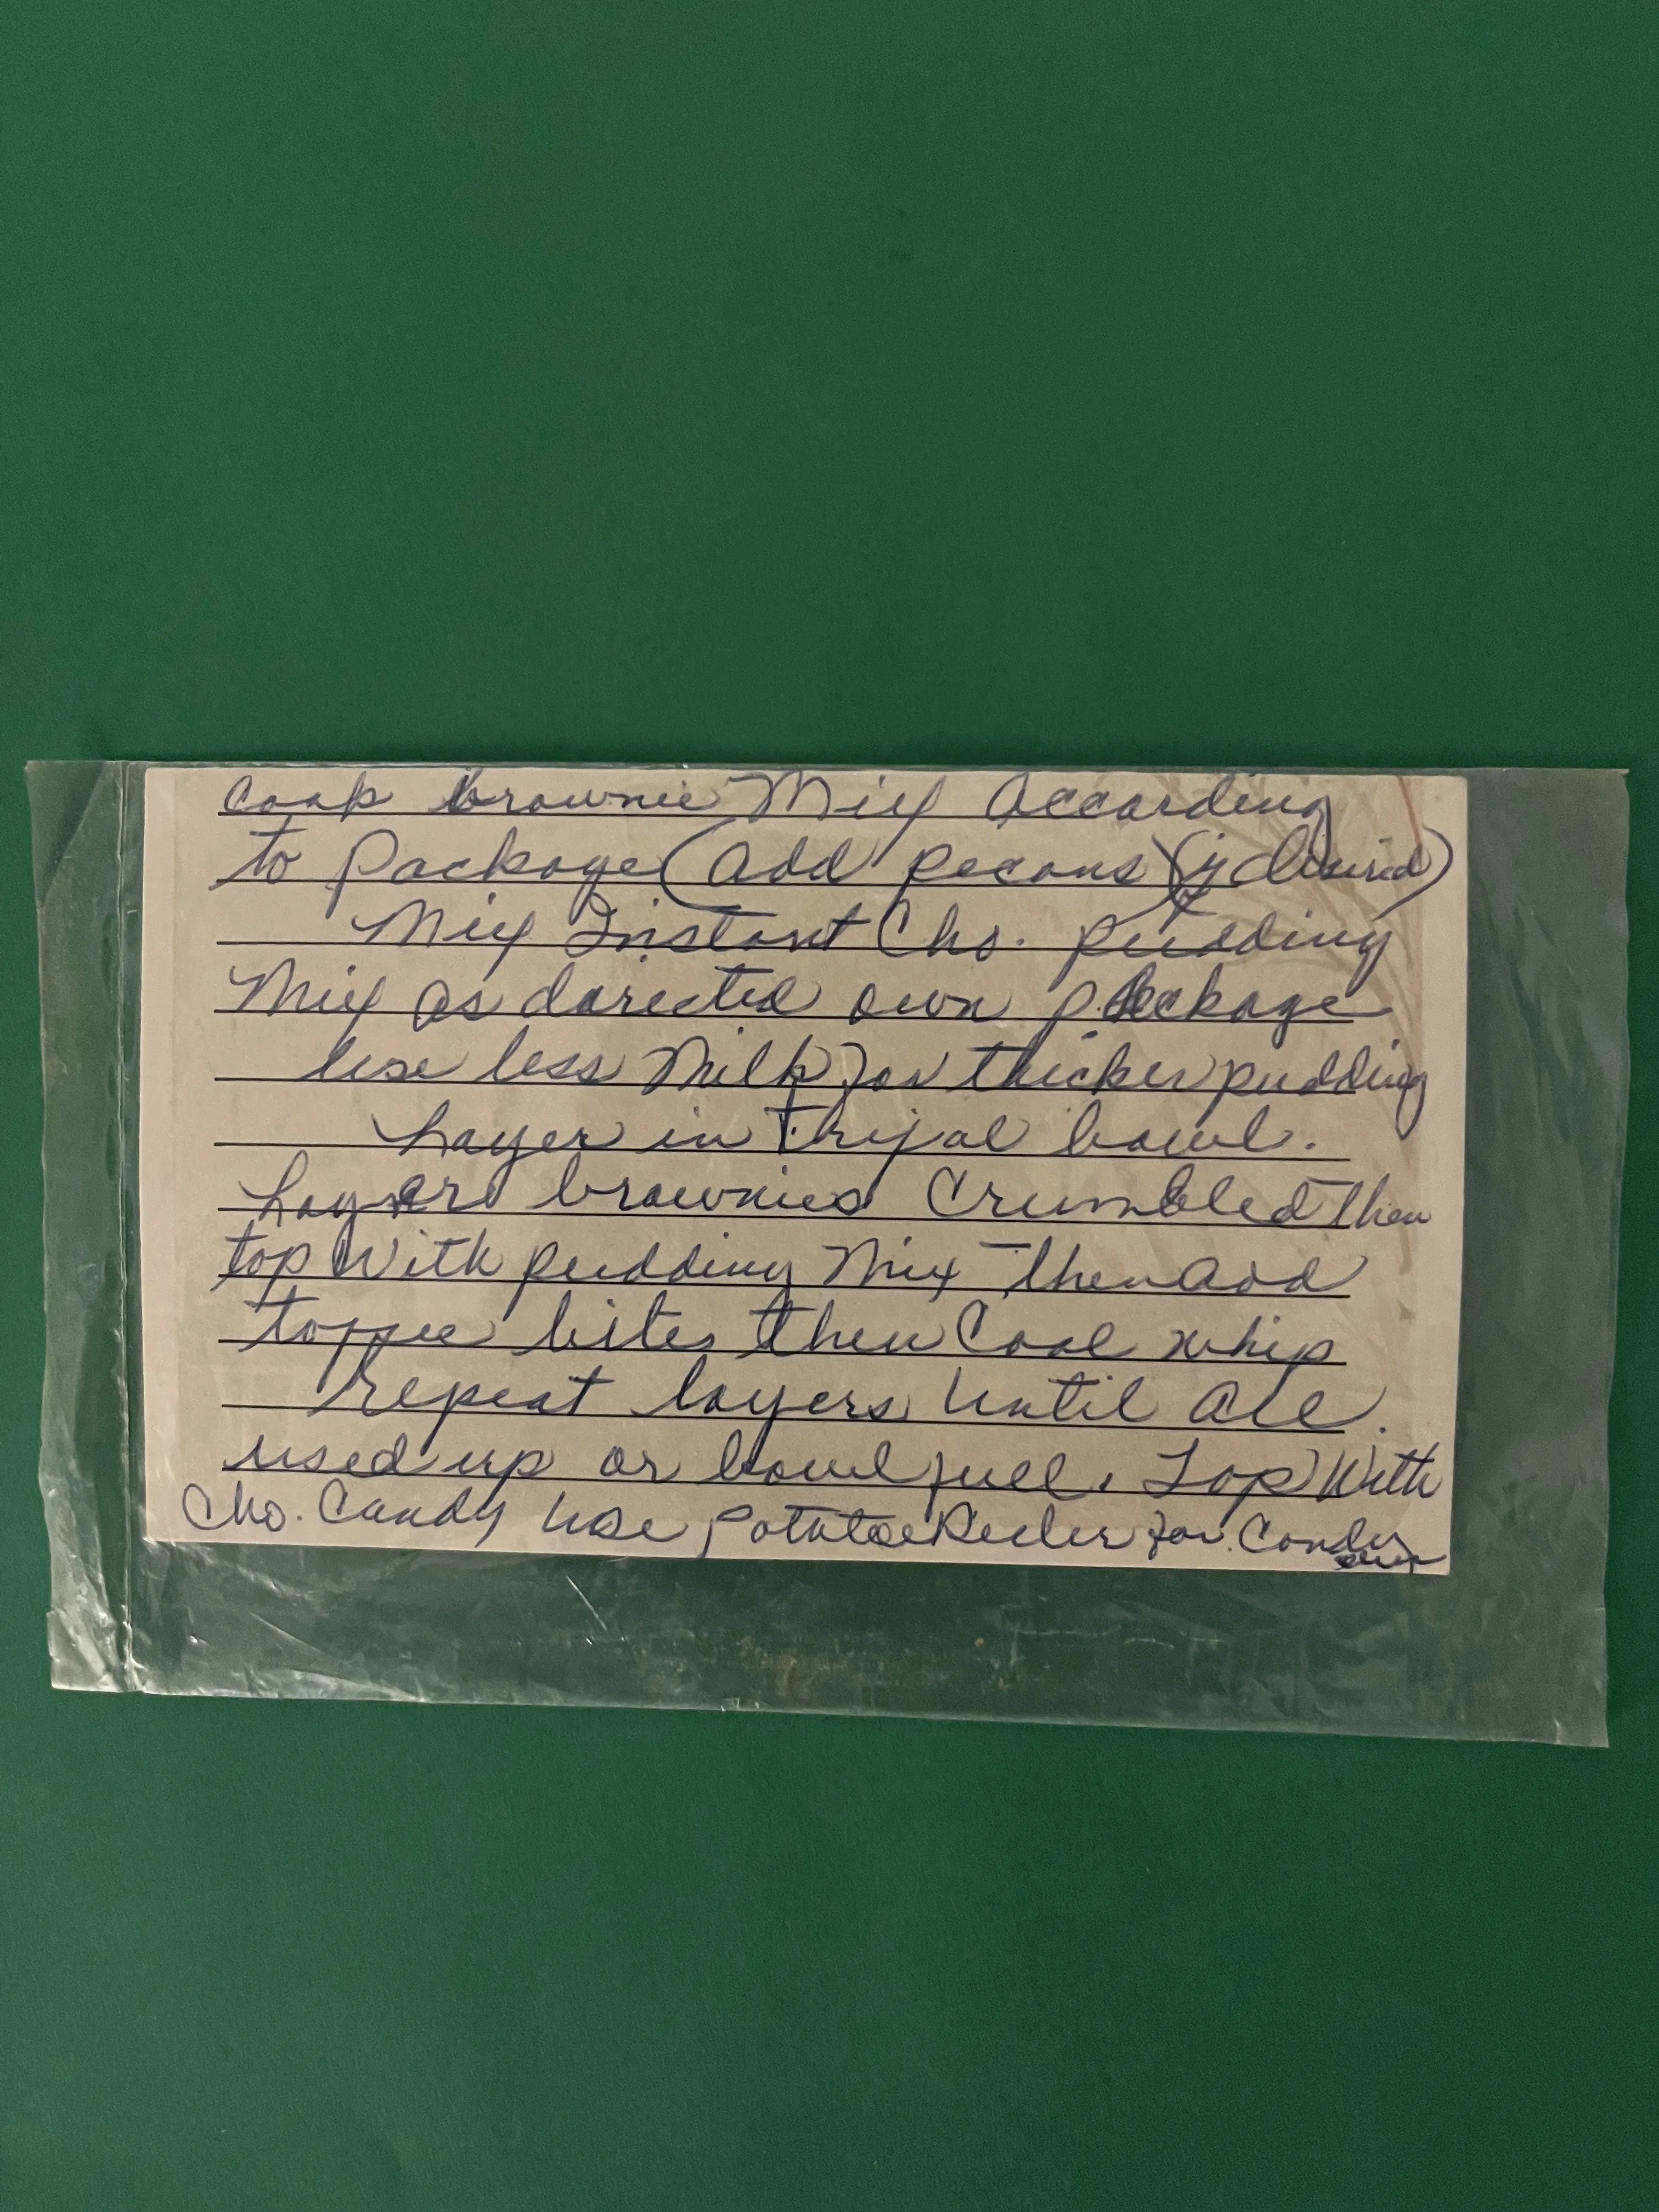 Cook brownie Mix According
to Package (Add pecans (if desired)
Mix Instant Cho. pudding
Mix as darected own package
Use less Milk for thicker pudding
Layer in Trifal bowl.
Layer brownies Crumbled Then
top With pudding Mix Then add
toffee bites then Cool whip
Repeat layers until all
used up or bowl full. Top With
Cho. Candy Use Potatoe Peeler for Candy